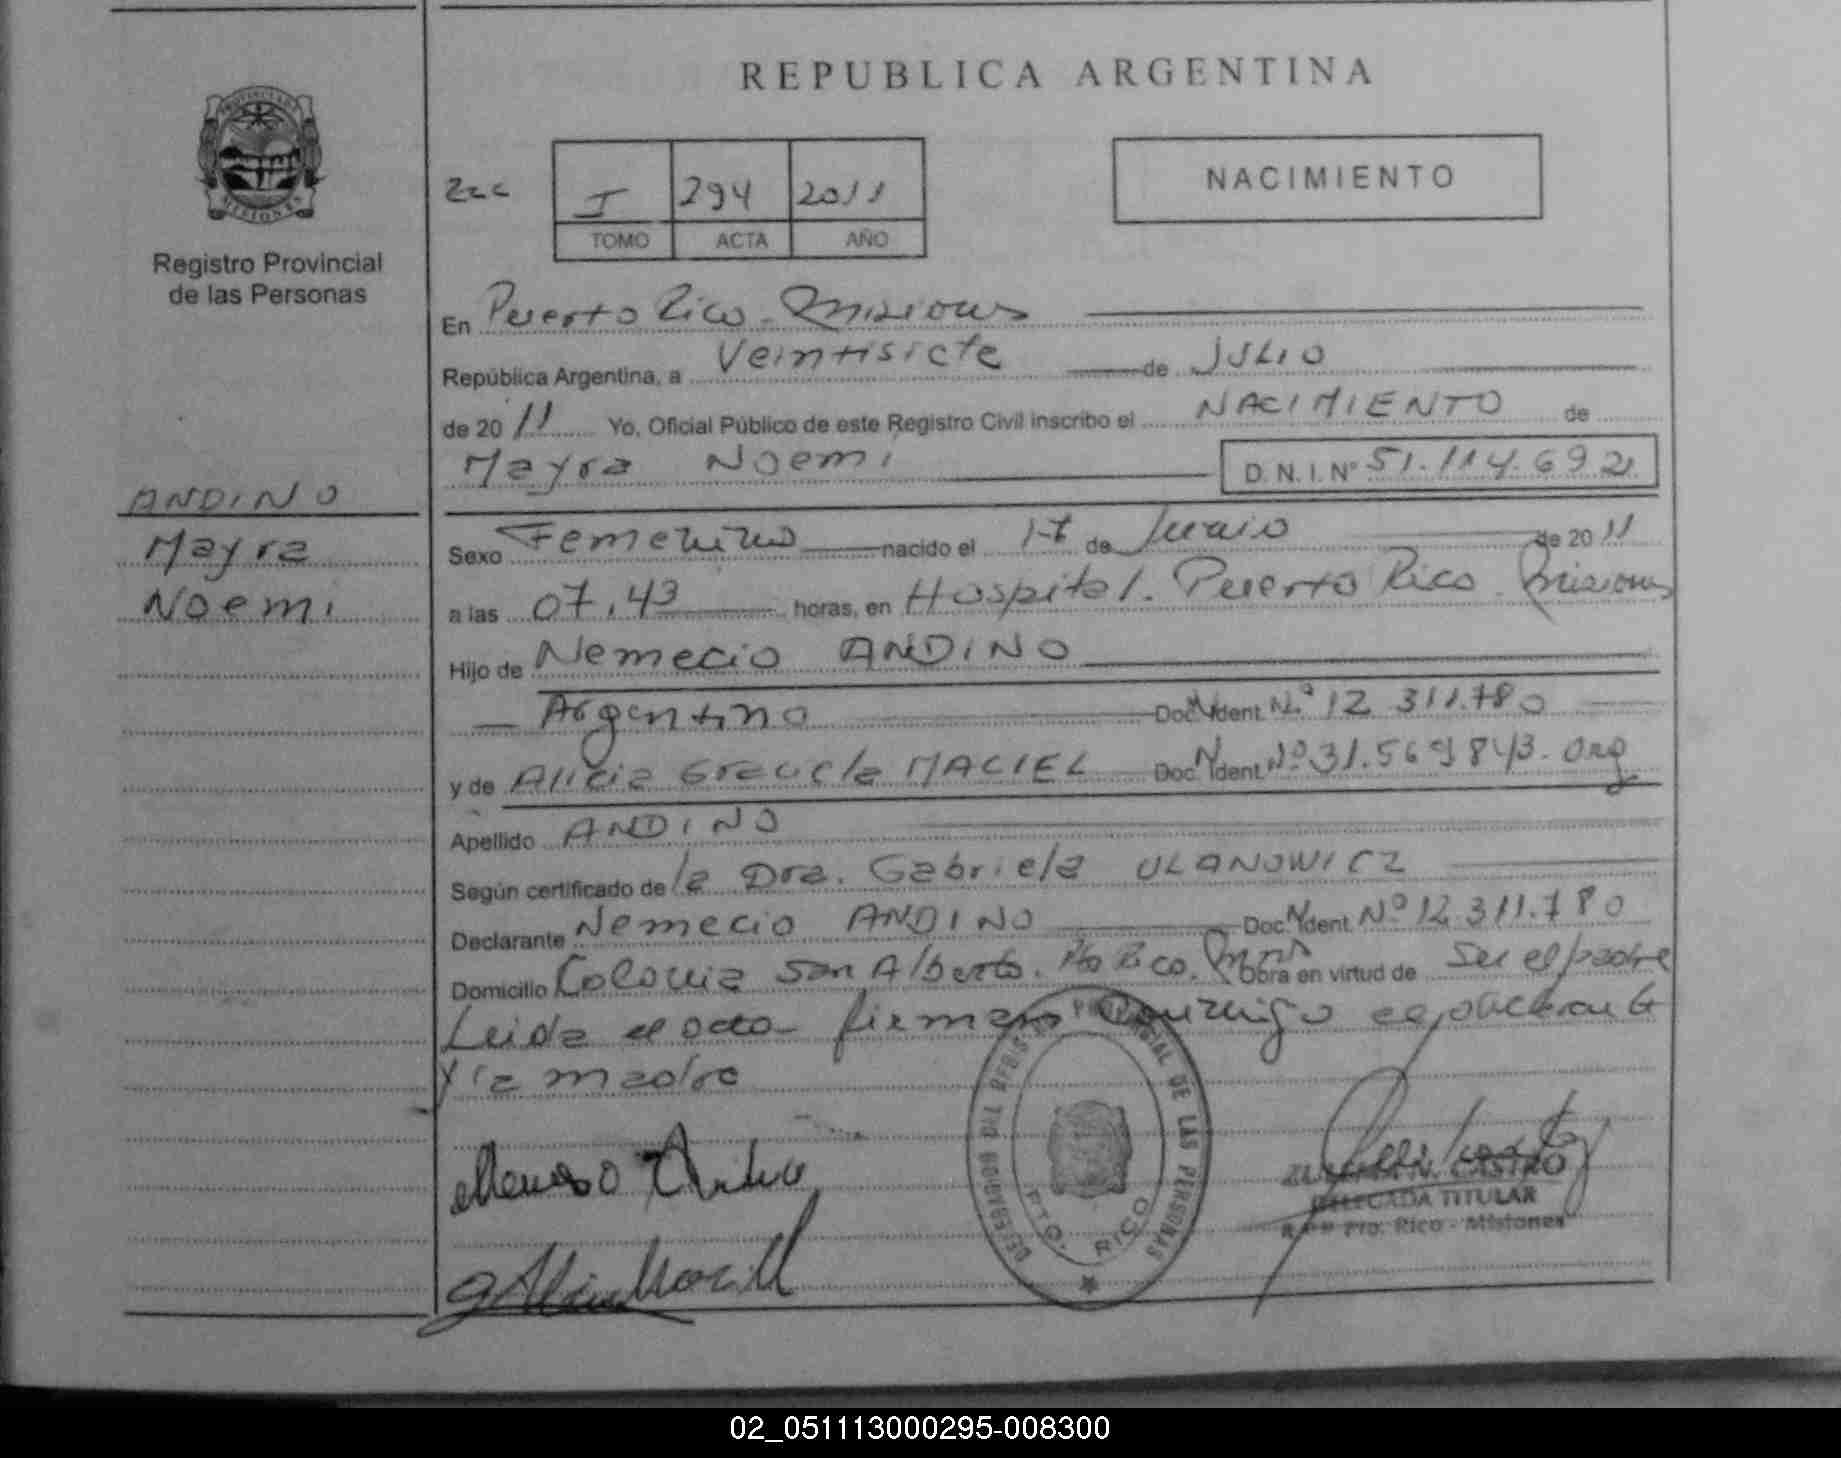 REPUBLICA ARGENTINA
PROVINCIA DE
MISIONES
Registro Provincial
de las Personas
I 294 2011
TOMO ACTA AÑO
NACIMIENTO
En Puerto Rico - Misiones
República Argentina, a Veintisiete de JULIO
de 2011 Yo, Oficial Público de este Registro Civil inscribo el NACIMIENTO de
Mayra Noemi D. N. I. Nº 51.114.692
ANDINO
Mayra
Noemi
Sexo Femenino nacido el de Junio de 2011
a las 07.43 horas, en Hospital. Puerto Rico. Misiones
Hijo de Nemecio ANDINO
Argentino Doc. Ident. Nº 12.311.780
y de Alicia Graciela MACIEL Doc. Ident. Nº 31.569.843. Arg
Apellido ANDINO
Según certificado de la Dra. Gabriela ULANOWICZ
Declarante Nemecio ANDINO Doc. Ident. Nº 12.311.780
Domicilio Colonia San Alberto. Pto Rico. Mnes Obra en virtud de Ser el padre
Leida el acta firman conmigo el declarante
y la madre
REGISTRO PROVINCIAL DE LAS PERSONAS
PTO. RICO
N. CASTRO
DELEGADA TITULAR
Pto. Rico - Misiones
02_051113000295-008300